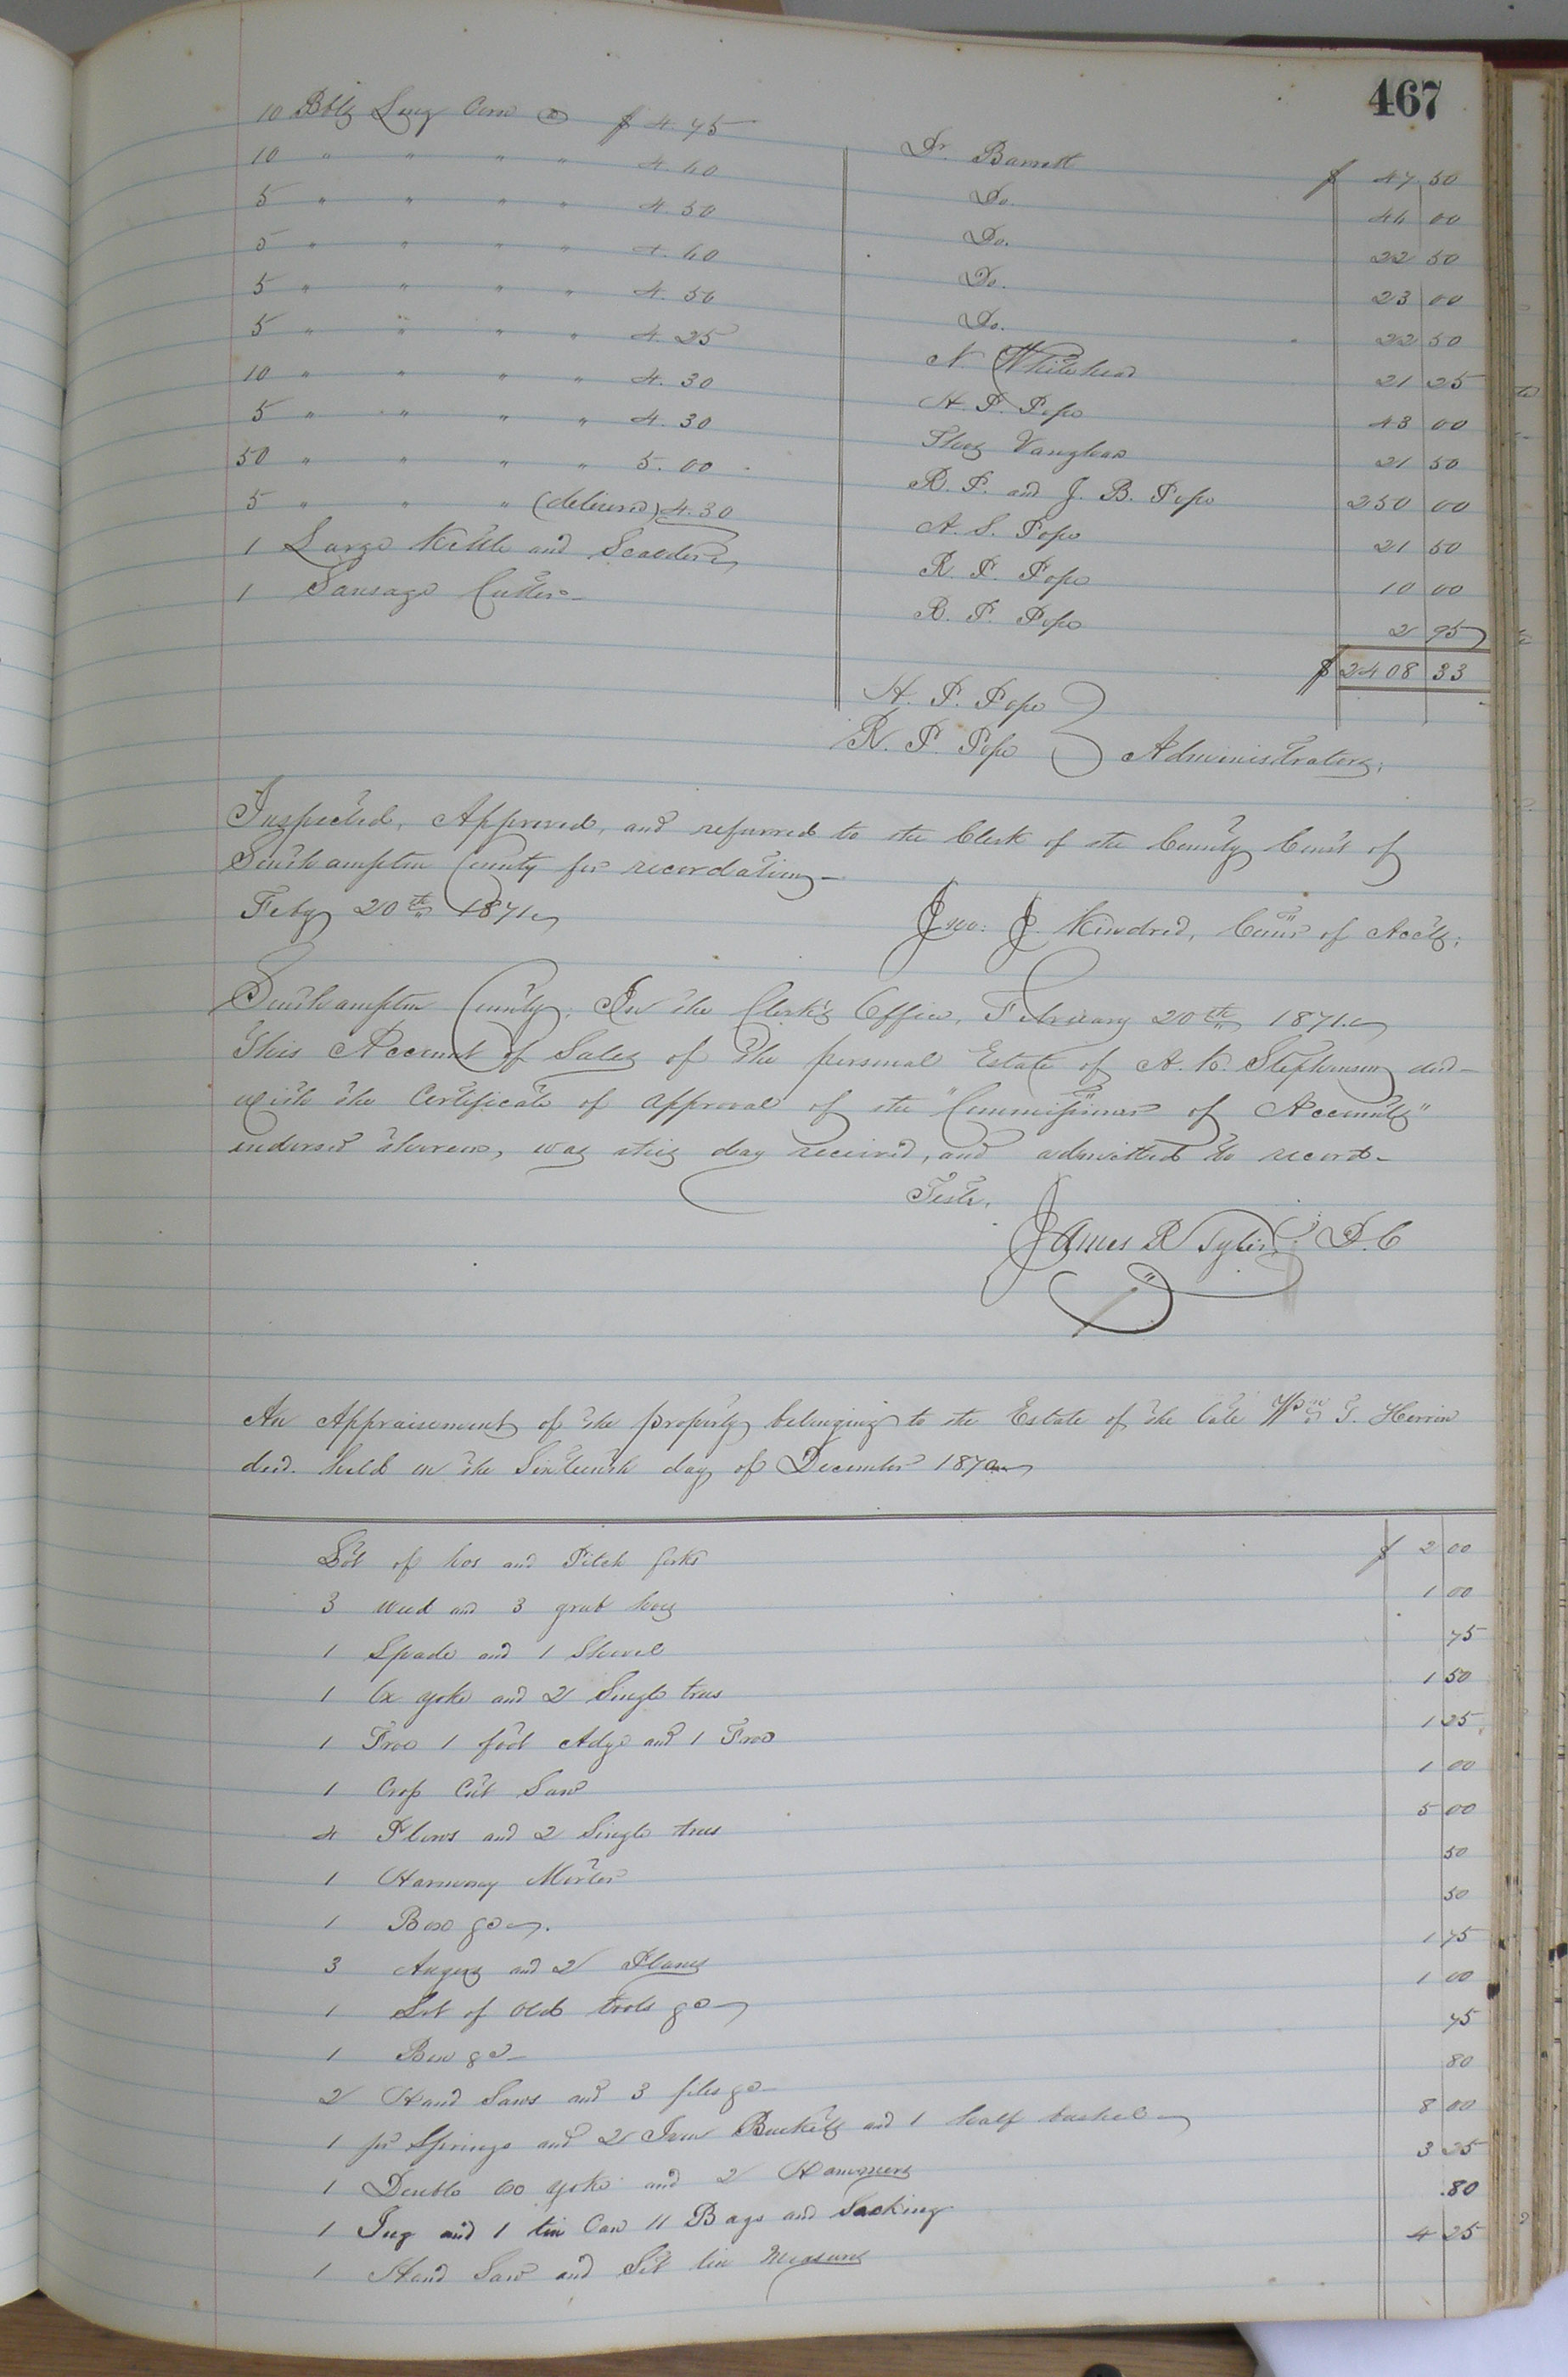 467
10 Bbls Lucy Corn @ $4.75 Dr. Barrett $ 47 50
10 " " " " 4.60 Do. 46 00
5 " " " " 4.50 Do. 22 50
5 " " " " 4.60 Do. 23 00
5 " " " " 4.50 Do. 22 50
5 " " " " 4.25 N. Whitehead 21 25
10 " " " " 4.30 H. P. Pope 43 00
5 " " " " 4.30 Thos Vaughan 21 50
50 " " " " 5.00 R. P. and J. B. Pope 250 00
5 " " " (delivered) 4.30 A. S. Pope 21 50
1 Large Kettle and R. P. Pope 10 00
1 Sausage Cutter R. P. Pope 2 95
$ 2408 33
H. P. Pope
R. P. Pope } Administrators;
Inspected, Approved, and referred to the Clerk of the County Court of
Southampton County for recordation
Feby 20th 1871
Jno: J. Kindred, Comr of Accts;
Southampton County; In the Clerk's Office, February 20th 1871
This Account of Sales of the personal Estate of A. K. Stephenson decd
with the Certificate of approval of the "Commissioner of Accounts"
endorsed thereon, was this day received, and admitted to record
Teste,
James R Tyler D.C
An Appraisement of the property belonging to the Estate of the late Wm T. Herrin
decd. held on the Sixteenth day of December 1870
Lot of hoes and Pitch forks $ 2 00
3 weed and 3 grub hoes 1 00
1 Spade and 1 Shovel 75
1 Ox yoke and 2 Single trees 1 50
1 Froe 1 foot Adze and 1 Froe 1 25
1 Crop Cut Saw 1 00
4 Plows and 2 Single trees 5 00
1 Mortar 50
1 Box &c 50
3 Augers and 2 Planes 1 75
1 Lot of Old tools &c 1 00
1 Box &c 75
2 Hand Saws and 3 files &c 80
1 pr Springs and 2 Iron Buckets and 1 half bushel 8 00
1 Double Ox yoke and 2 Hammers 3 25
1 Jug and 1 tin Can 11 Bags and Sacking .80
1 Hand Saw and Set tin Measures 4 25